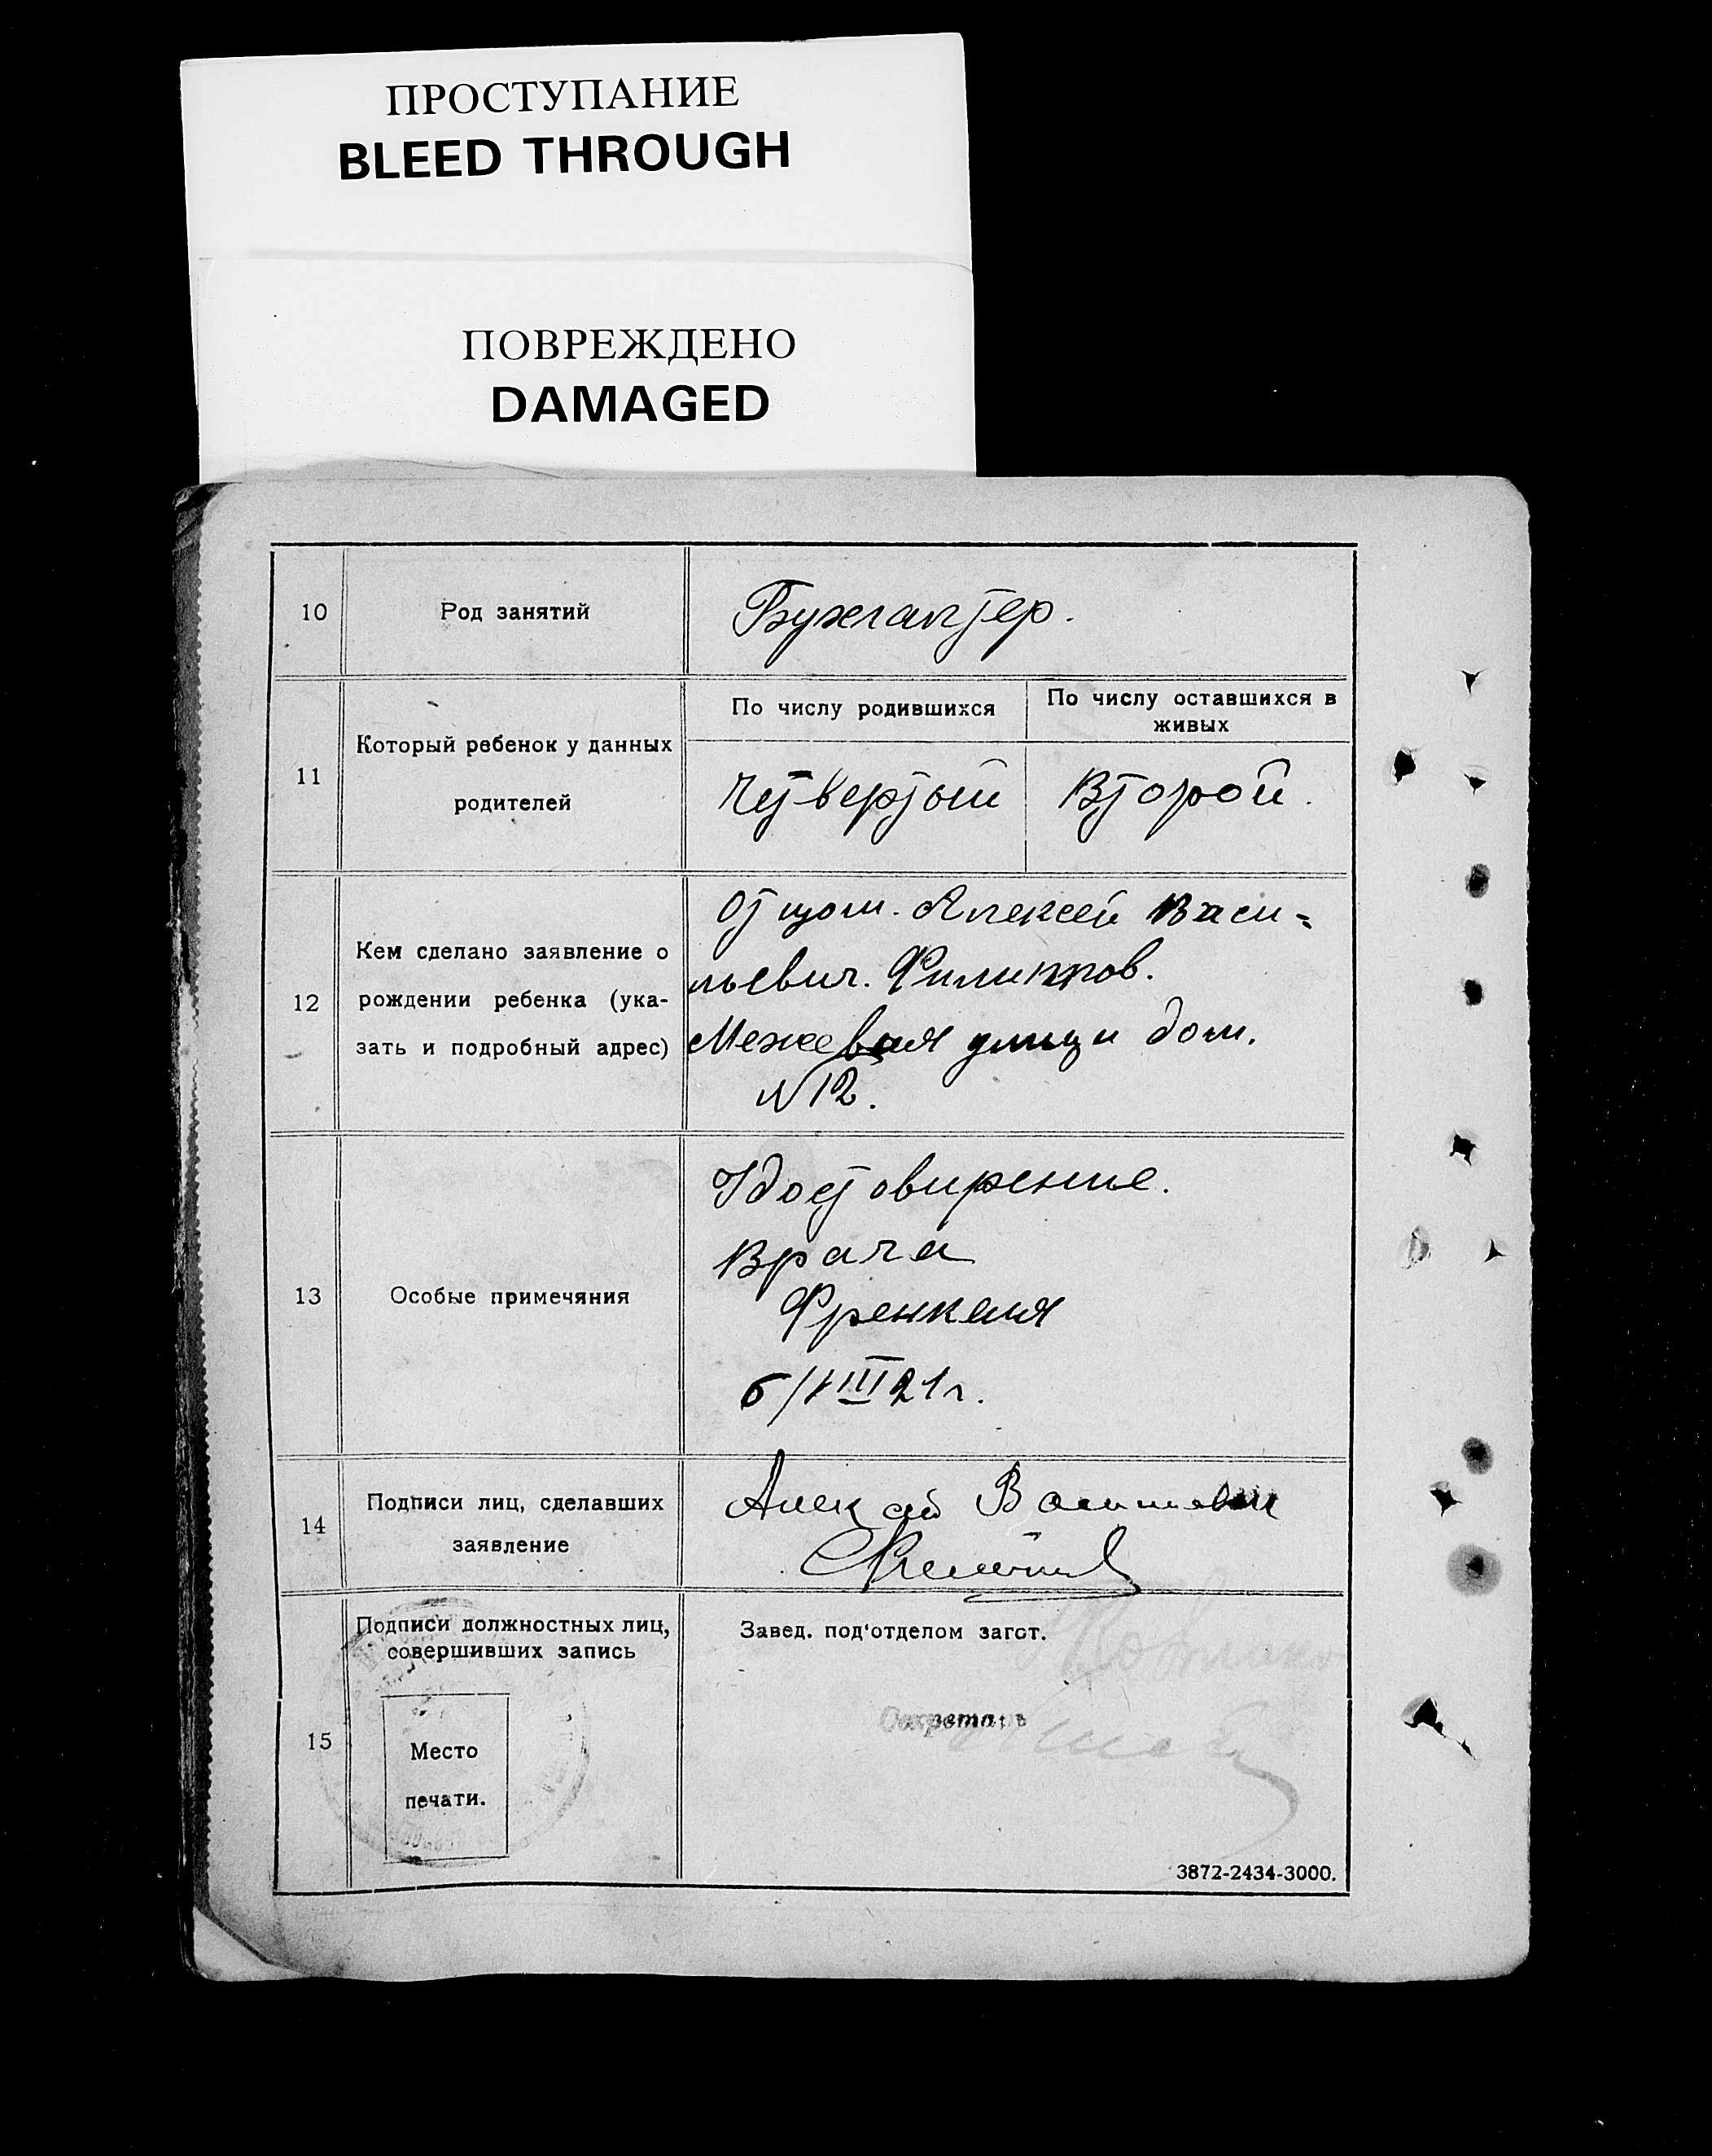 ПРОСТУПАНИЕ
BLEED THROUGH
ПОВРЕЖДЕНО
DAMAGED
10
Род занятий
Бухгалтер.
11
Который ребенок у данных
родителей
По числу родившихся
По числу оставшихся в
живых
Четвертый
Второй.
12
Кем сделано заявление о
рождении ребенка (ука-
зать и подробный адрес)
Отцом. Алексей Васи=
льевич. Филиппов.
Межевая улици дом.
N 12.
13
Особые примечяния
Удостовирение.
Врача
Френкеля
6/VIII 21 г.
14
Подписи лиц, сделавших
заявление
Алексей Васильевич
15
Подписи должностных лиц,
совершивших запись
Место
печати.
Завед. под'отделом загст.
Секретарь
3872-2434-3000.